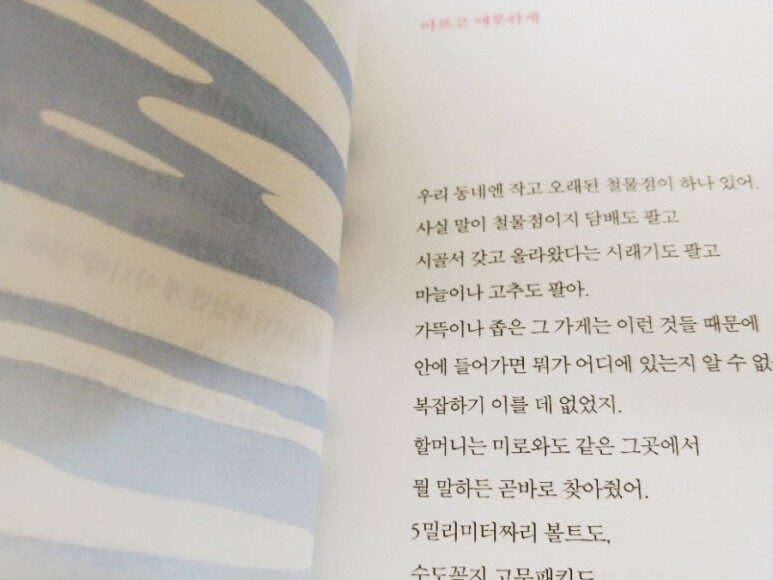 아프고 애틋하게
우리 동네엔 작고 오래된 철물점이 하나 있어.
사실 말이 철물점이지 담배도 팔고
시골서 갖고 올라왔다는 시래기도 팔고
마늘이나 고추도 팔아.
가뜩이나 좁은 그 가게는 이런 것들 때문에
안에 들어가면 뭐가 어디에 있는지 알 수 없
복잡하기 이를 데 없었지.
할머니는 미로와도 같은 그곳에서
뭘 말하든 곧바로 찾아줬어.
5밀리미터짜리 볼트도,
수도꼭지 고무패킹도